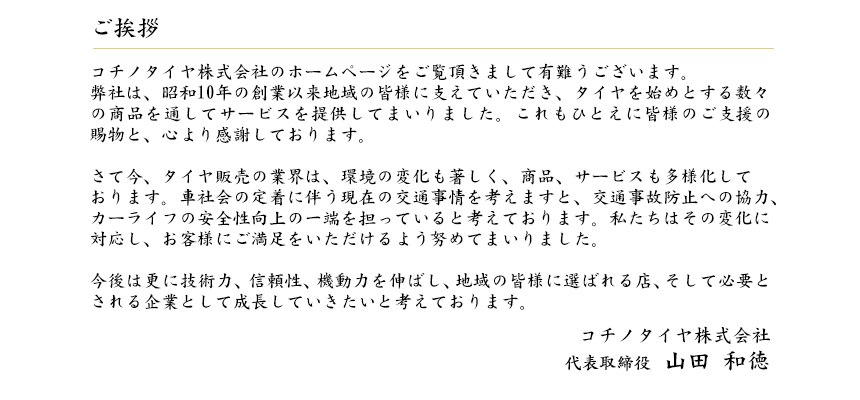 ご挨拶
コチノタイヤ株式会社のホームページをご覧頂きまして有難うございます。
弊社は、昭和10年の創業以来地域の皆様に支えていただき、タイヤを始めとする数々
の商品を通してサービスを提供してまいりました。これもひとえに皆様のご支援の
賜物と、心より感謝しております。
さて今、タイヤ販売の業界は、環境の変化も著しく、商品、サービスも多様化して
おります。車社会の定着に伴う現在の交通事情を考えますと、交通事故防止への協力、
カーライフの安全性向上の一端を担っていると考えております。私たちはその変化に
対応し、お客様にご満足をいただけるよう努めてまいりました。
今後は更に技術力、信頼性、機動力を伸ばし、地域の皆様に選ばれる店、そして必要と
される企業として成長していきたいと考えております。
コチノタイヤ株式会社
代表取締役 山田 和徳